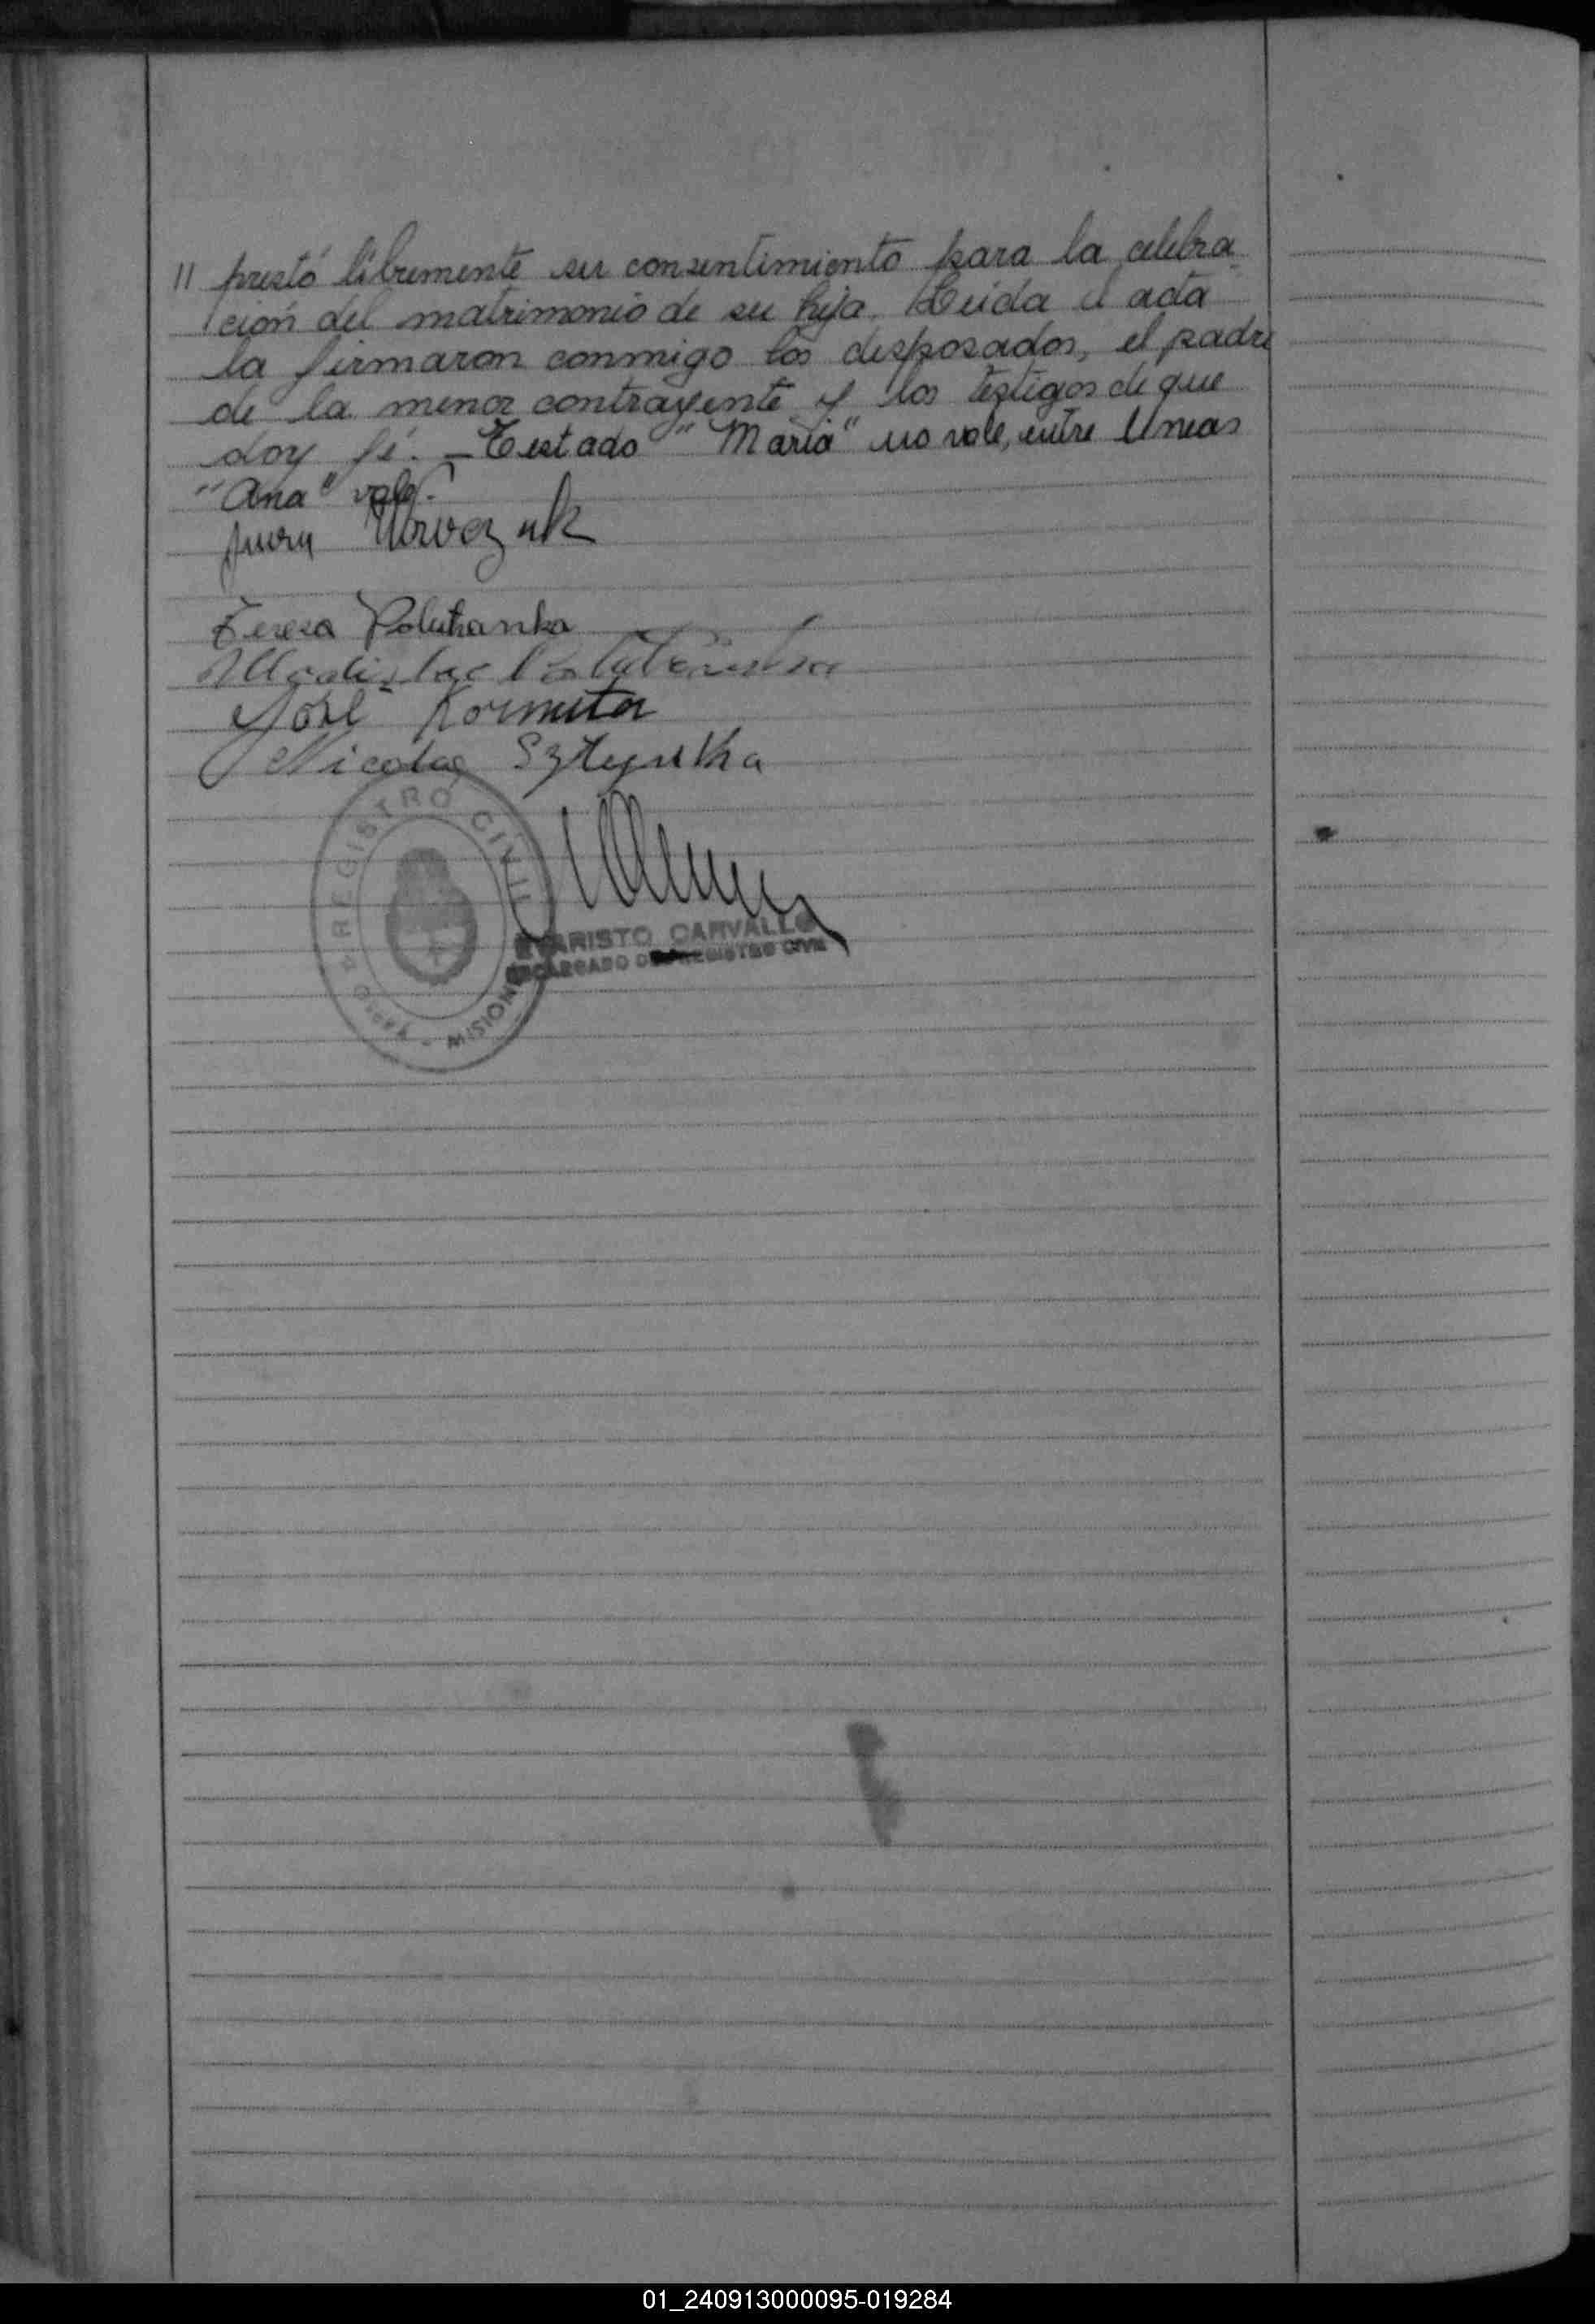 " prestó libremente su consentimiento para la celebra-
ción del matrimonio de su hija. Leida el acta
la firmaron conmigo los desposados, el padre
de la menor contrayente y los testigos de que
doy fé. - Testado "Maria" no vale, entre lineas
"Ana" vale.-
Juan
Teresa Poluhanka
José Kormuta
Nicolas
REGISTRO CIVIL
MISIONES
EVARISTO CARVALLO
ENCARGADO DEL REGISTRO CIVIL
01_240913000095-019284